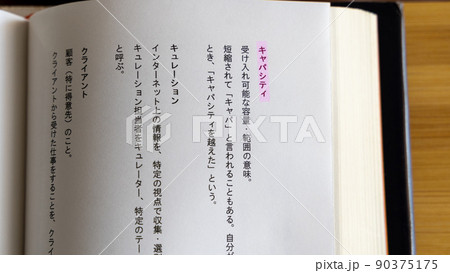 キャパシティ
受け入れ可能な容量・範囲の意味。
短縮されて「キャパ」と言われることもある。自分が
とき、「キャパシティを越えた」という。
キュレーション
インターネット上の情報を、特定の視点で収集・選別
と呼ぶ。
キュレーション担当者をキュレーター、特定のテー
クライアント
顧客（特に得意先）のこと。
クライアントから受けた仕事をすることを、クライ
PIXTA
pixta.jp - 90375175